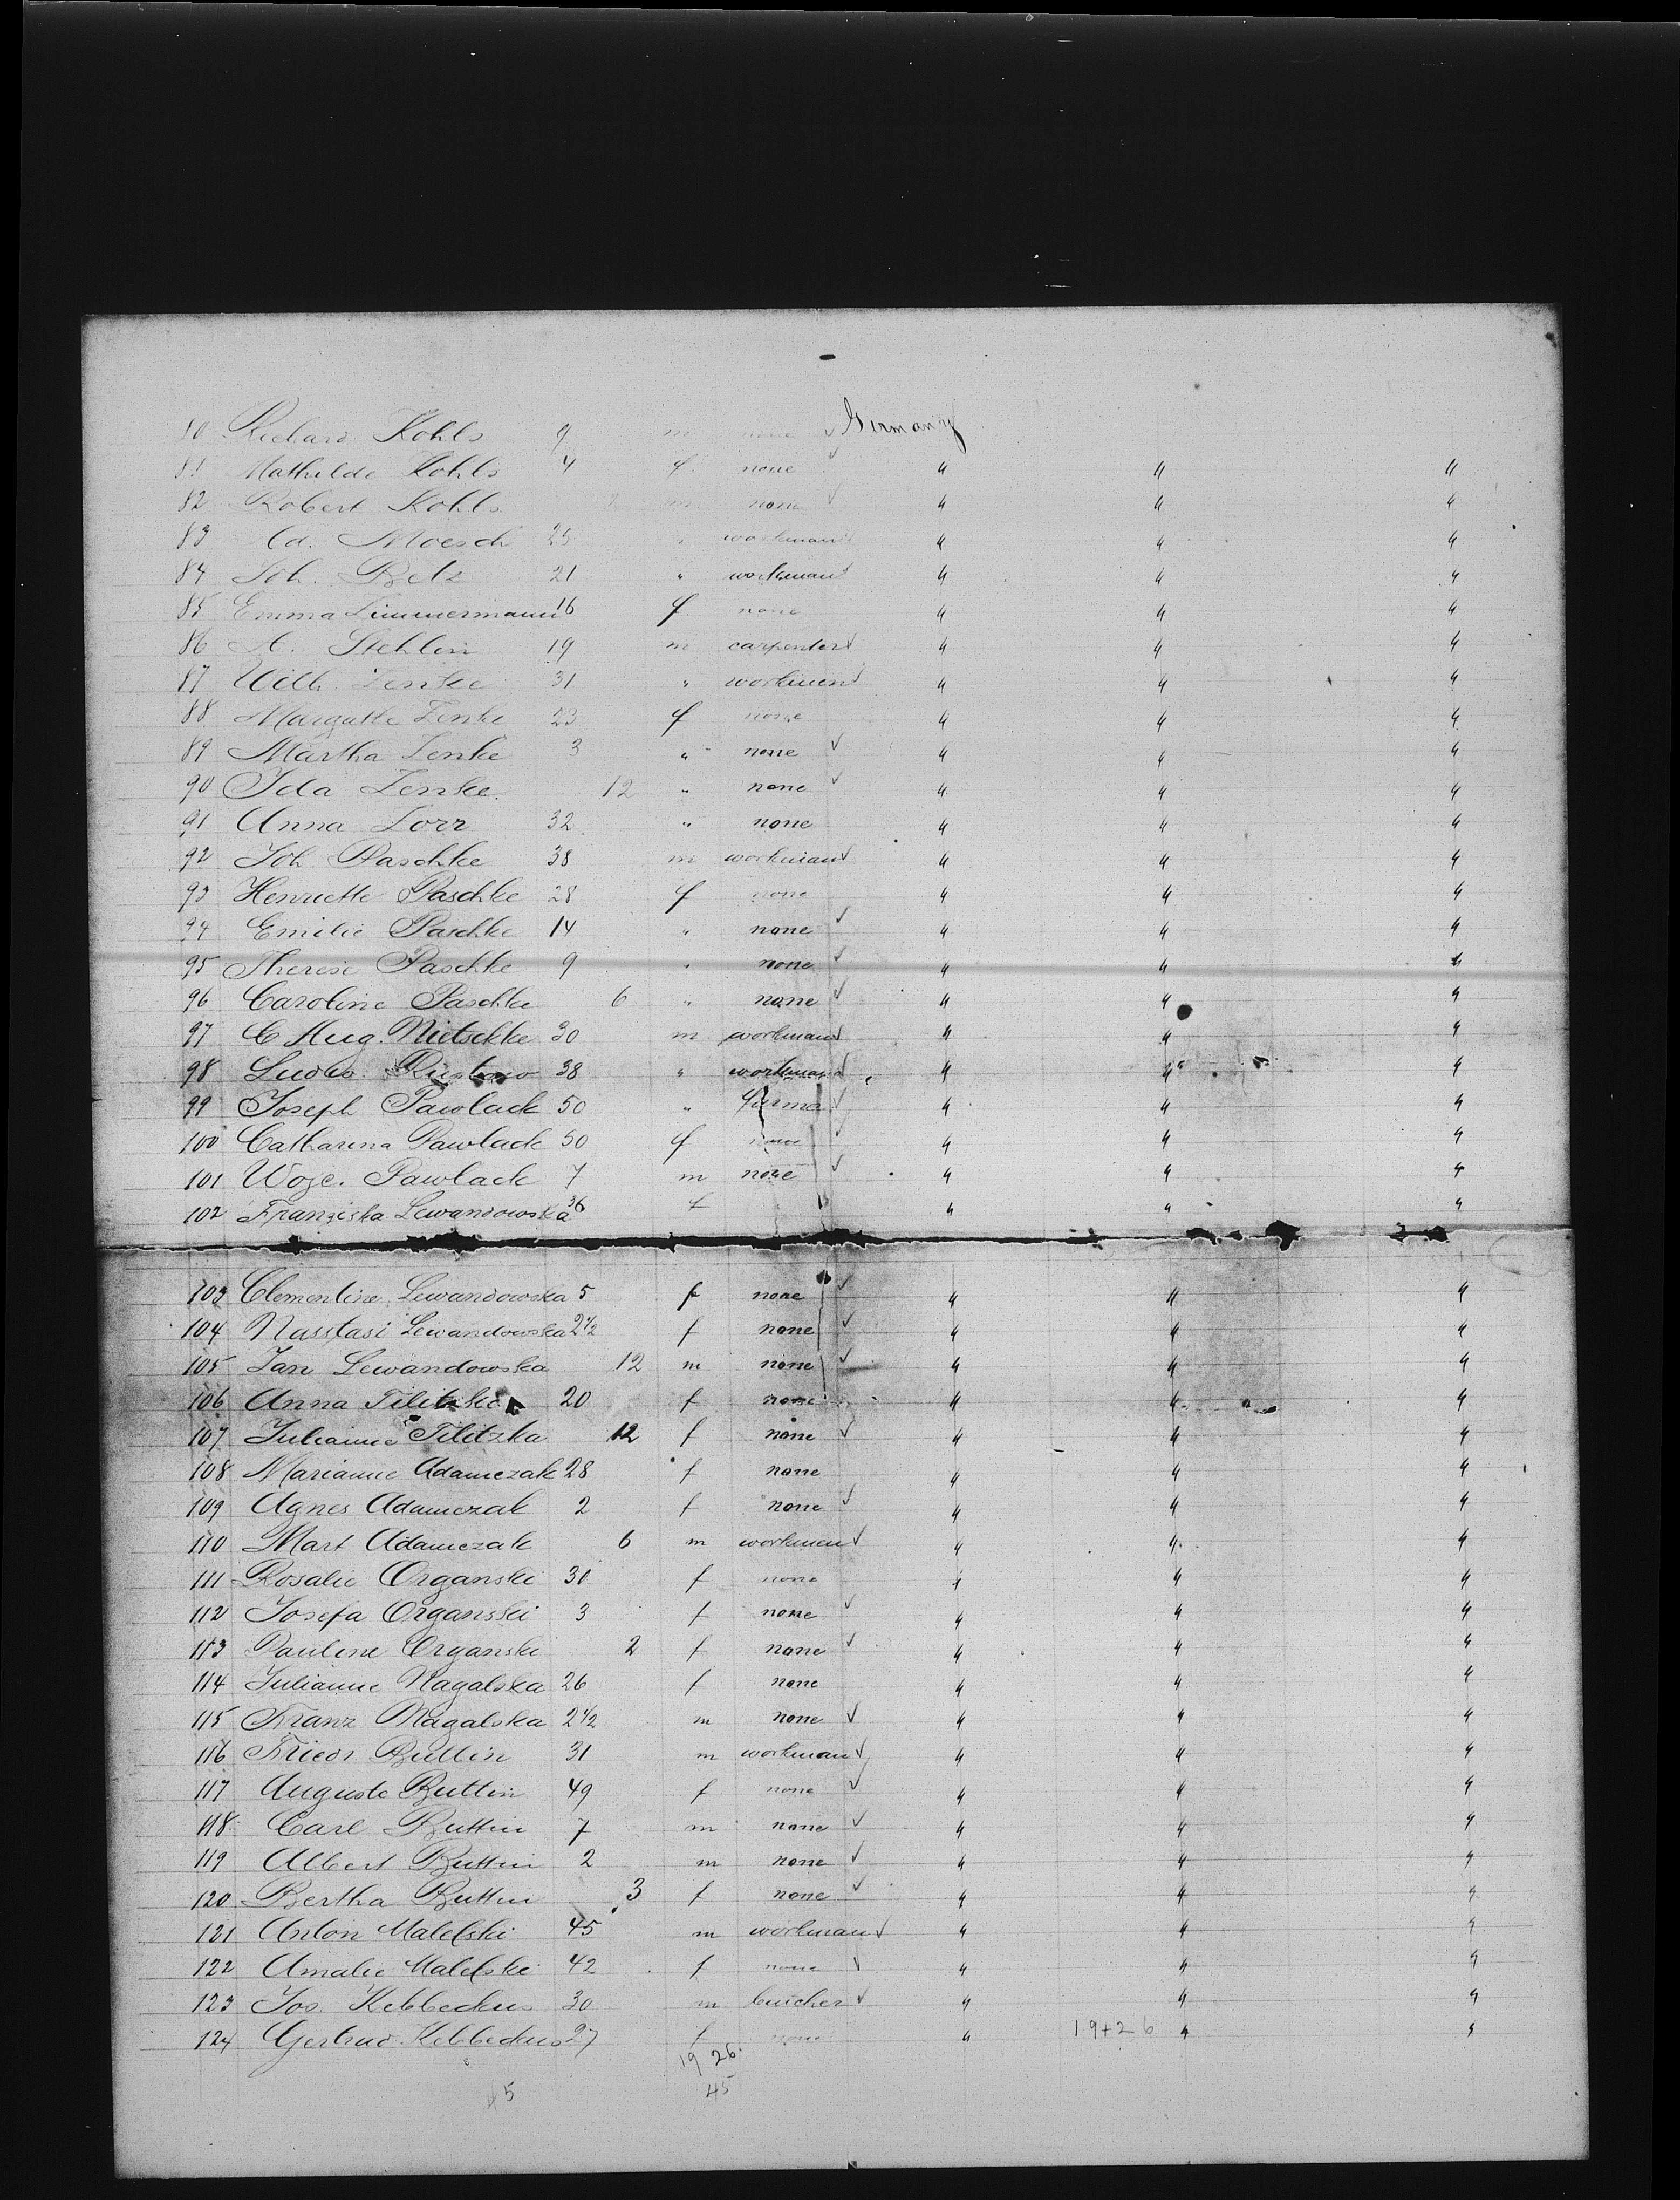 80 Richard Kohls 9 m none Germany
81 Mathilde Kohls 4 f. none " " "
82 Robert Kohls m none " " "
83 Moesch 25 " workman " " "
84 Joh. Betz 21 " workman " " "
85 Emma Zimmermann 16 f none " " "
86 A. Stehlin 19 m carpenter " " "
87 Wilh. Zenke 31 " workmen " " "
88 Margatte Zenke 23 f none " " "
89 Martha Zenke 3 " none " " "
90 Ida Zenke. 12 " none " " "
91 Anna Lorr 32 " none " " "
92 Joh Paschke 38 m workman " " "
93 Henriette Paschke 28 f none " " "
94 Emilie Paschke 14 " none " " "
95 Therese Paschke 9 " none " " "
96 Caroline Paschke 6 " none " " "
97 C Aug. Nietschke 30 m workman " " "
98 38 " workman " " "
99 Joseph Pawlack 50 " " " "
100 Catharina Pawlack 50 f none " " "
101 Woje. Pawlack 7 m none " " "
102 Franziska Lewandowska 36 f " " "
103 Clementine Lewandowska 5 f none " " "
104 Nasstasi Lewandowska 2 1/2 f none " " "
105 Jan Lewandowska 12 m none " " "
106 Anna 20 f none " " "
107 Julianne Tilitzka 12 f none " " "
108 Marianne Adamczak 28 f none " " "
109 Agnes Adamczak 2 f none " " "
110 Mart Adamczak 6 m workmen " " "
111 Rosalie Organski 30 f none " " "
112 Josefa Organski 3 f none " " "
113 Pauline Organski 2 f none " " "
114 Julianne Nagalska 26 f none " " "
115 Franz Nagalska 2 1/2 m none " " "
116 Friedr Buttin 31 m workman " " "
117 Auguste Buttin 49 f none " " "
118 Carl Buttin 7 m none " " "
119 Albert Buttin 2 m none " " "
120 Bertha Buttin 3 f none " " "
121 Anton Malefski 45 m workman " " "
122 Amalie Malefski 42 f none " " "
123 Jos. Kebbeckus 30 m butcher " " "
124 Gertrud Kebbeckus 27 f none " 19+26 " "
19 26.
5 45